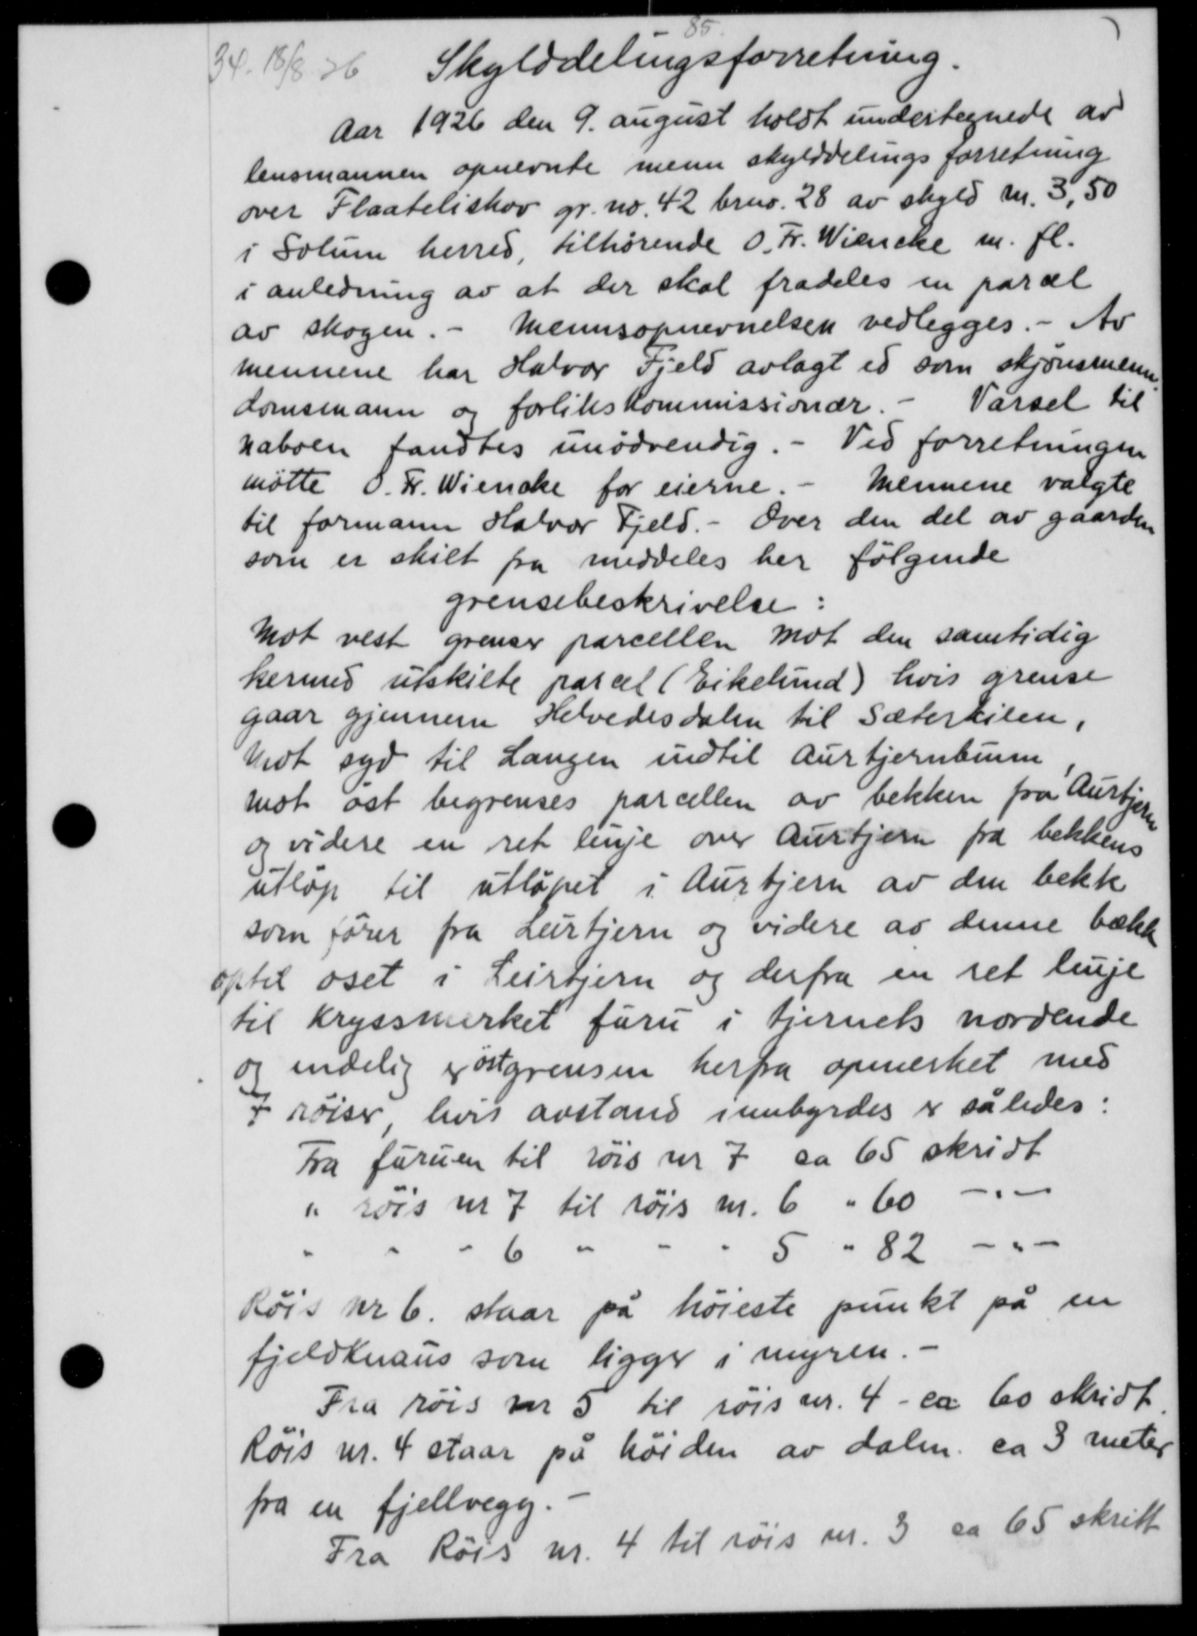 85.
34. 18/8 26 Skylddelingsforretning.
Aar 1926 den 9. august holdt undertegnede av
lensmannen opnevnte menn skylddelingsforretning
over Flaateliskov gr. no. 42 brno. 28 av skyld m. 3,50
i Solum herred, tilhørende O. Fr. Wiencke m. fl.
i anledning av at der skal fradeles en parcel
av skogen. - Mennsopnevnelsen vedlegges. - Av
mennene har Halvor Fjeld avlagt ed som skjønsmenn.
domsmann og forlikskommissionær. - Varsel til
naboen fandtes unödvendig. - Ved forretningen
mötte O. Fr. Wiencke for eierne. - Mennene valgte
til formann Halvor Fjeld. - Over den del av gaarden
som er skilt fra meddeles her fölgende
grensebeskrivelse:
Mot vest grenser parcellen mot den samtidig
hermed utskilte parcel (Eikelund) hvis grense
gaar gjennem Helvedesdalen til Sæterkilen,
Mot syd til Langen indtil Aurtjernbunn,
mot öst begrenses parcellen av bekken fra Aurtjern
og videre en ret linje over Aurtjern fra bekkens
utlöp til utlöpet i Aurtjern av den bekk
som förer fra Leirtjern og videre av denne bækk
optil oset i Leirtjern og derfra en ret linje
til kryssmerket furu i tjernets nordende
og endelig er östgrensen herfra opmerket med
7 röiser, hvis avstand innbyrdes er således:
Fra furuen til röis nr 7 ca 65 skridt
" röis nr 7 til röis nr. 6 " 60 -"-
" " " 6 " " " 5 " 82 -"-
Röis nr 6. staar på höieste punkt på en
fjeldknaus som ligger i myren. -
Fra röis nr 5 til röis nr. 4 - ca 60 skridt.
Röis nr. 4 staar på höiden av dalen ca 3 meter
fra en fjellvegg. -
Fra Röis nr. 4 til röis nr. 3 ca 65 skritt